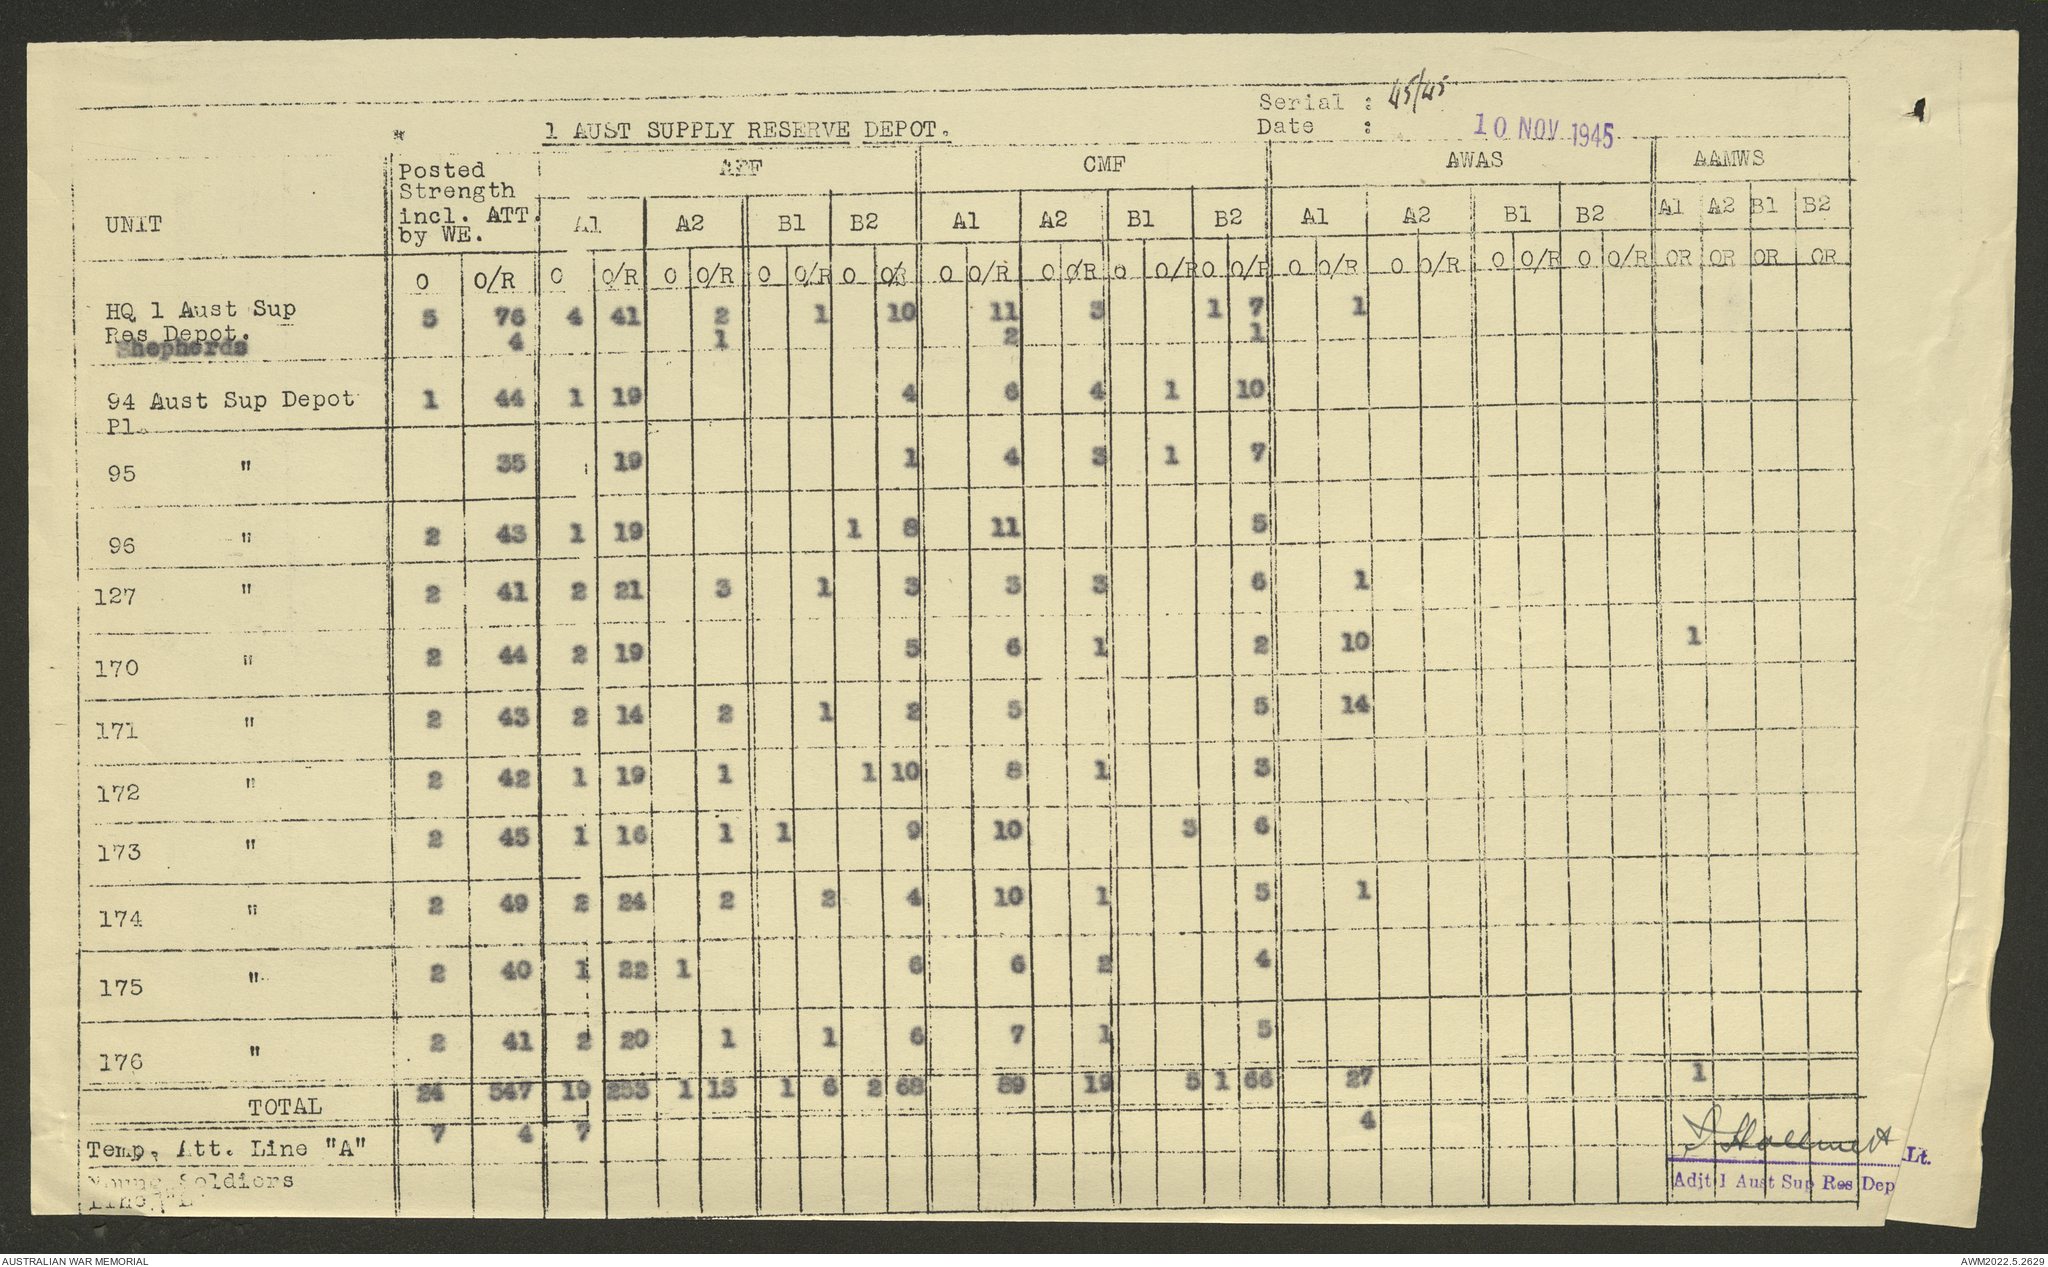 Serial : 45/45
1 AUST SUPPLY RESERVE DEPOT.
Date : 10 NOV 1945
UNIT
Posted Strength incl. ATT. by WE.
AIF CMF AWAS AAMWS
A1 A2 B1 B2 A1 A2 B1 B2 A1 A2 B1 B2 A1 A2 B1 B2
O O/R O O/R O O/R O O/R O O/R O O/R O O/R O O/R O O/R O O/R O O/R O O/R O O/R OR OR OR OR
HQ 1 Aust Sup 5 76 4 41 2 1 10 11 3 1 7 1
Res Depot.
Shepherds 4 1 2 1
94 Aust Sup Depot 1 44 1 19 4 6 4 1 10
Pl.
95 " 35 19 1 4 3 1 7
96 " 2 43 1 19 1 8 11 5
127 " 2 41 2 21 3 1 3 3 3 6 1
170 " 2 44 2 19 5 6 1 2 10 1
171 " 2 43 2 14 2 1 2 5 5 14
172 " 2 42 1 19 1 1 10 8 1 3
173 " 2 45 1 16 1 1 9 10 3 6
174 " 2 49 2 24 2 2 4 10 1 5 1
175 " 2 40 1 22 1 6 6 2 4
176 " 2 41 2 20 1 1 6 7 1 5
TOTAL 24 547 19 253 1 13 1 6 2 68 89 19 5 1 66 27 1
Temp. Att. Line "A" 7 4 7 4
Young Soldiers
Line
Lt.
Adjt 1 Aust Sup Res Dep
AUSTRALIAN WAR MEMORIAL
AWM2022.5.2629